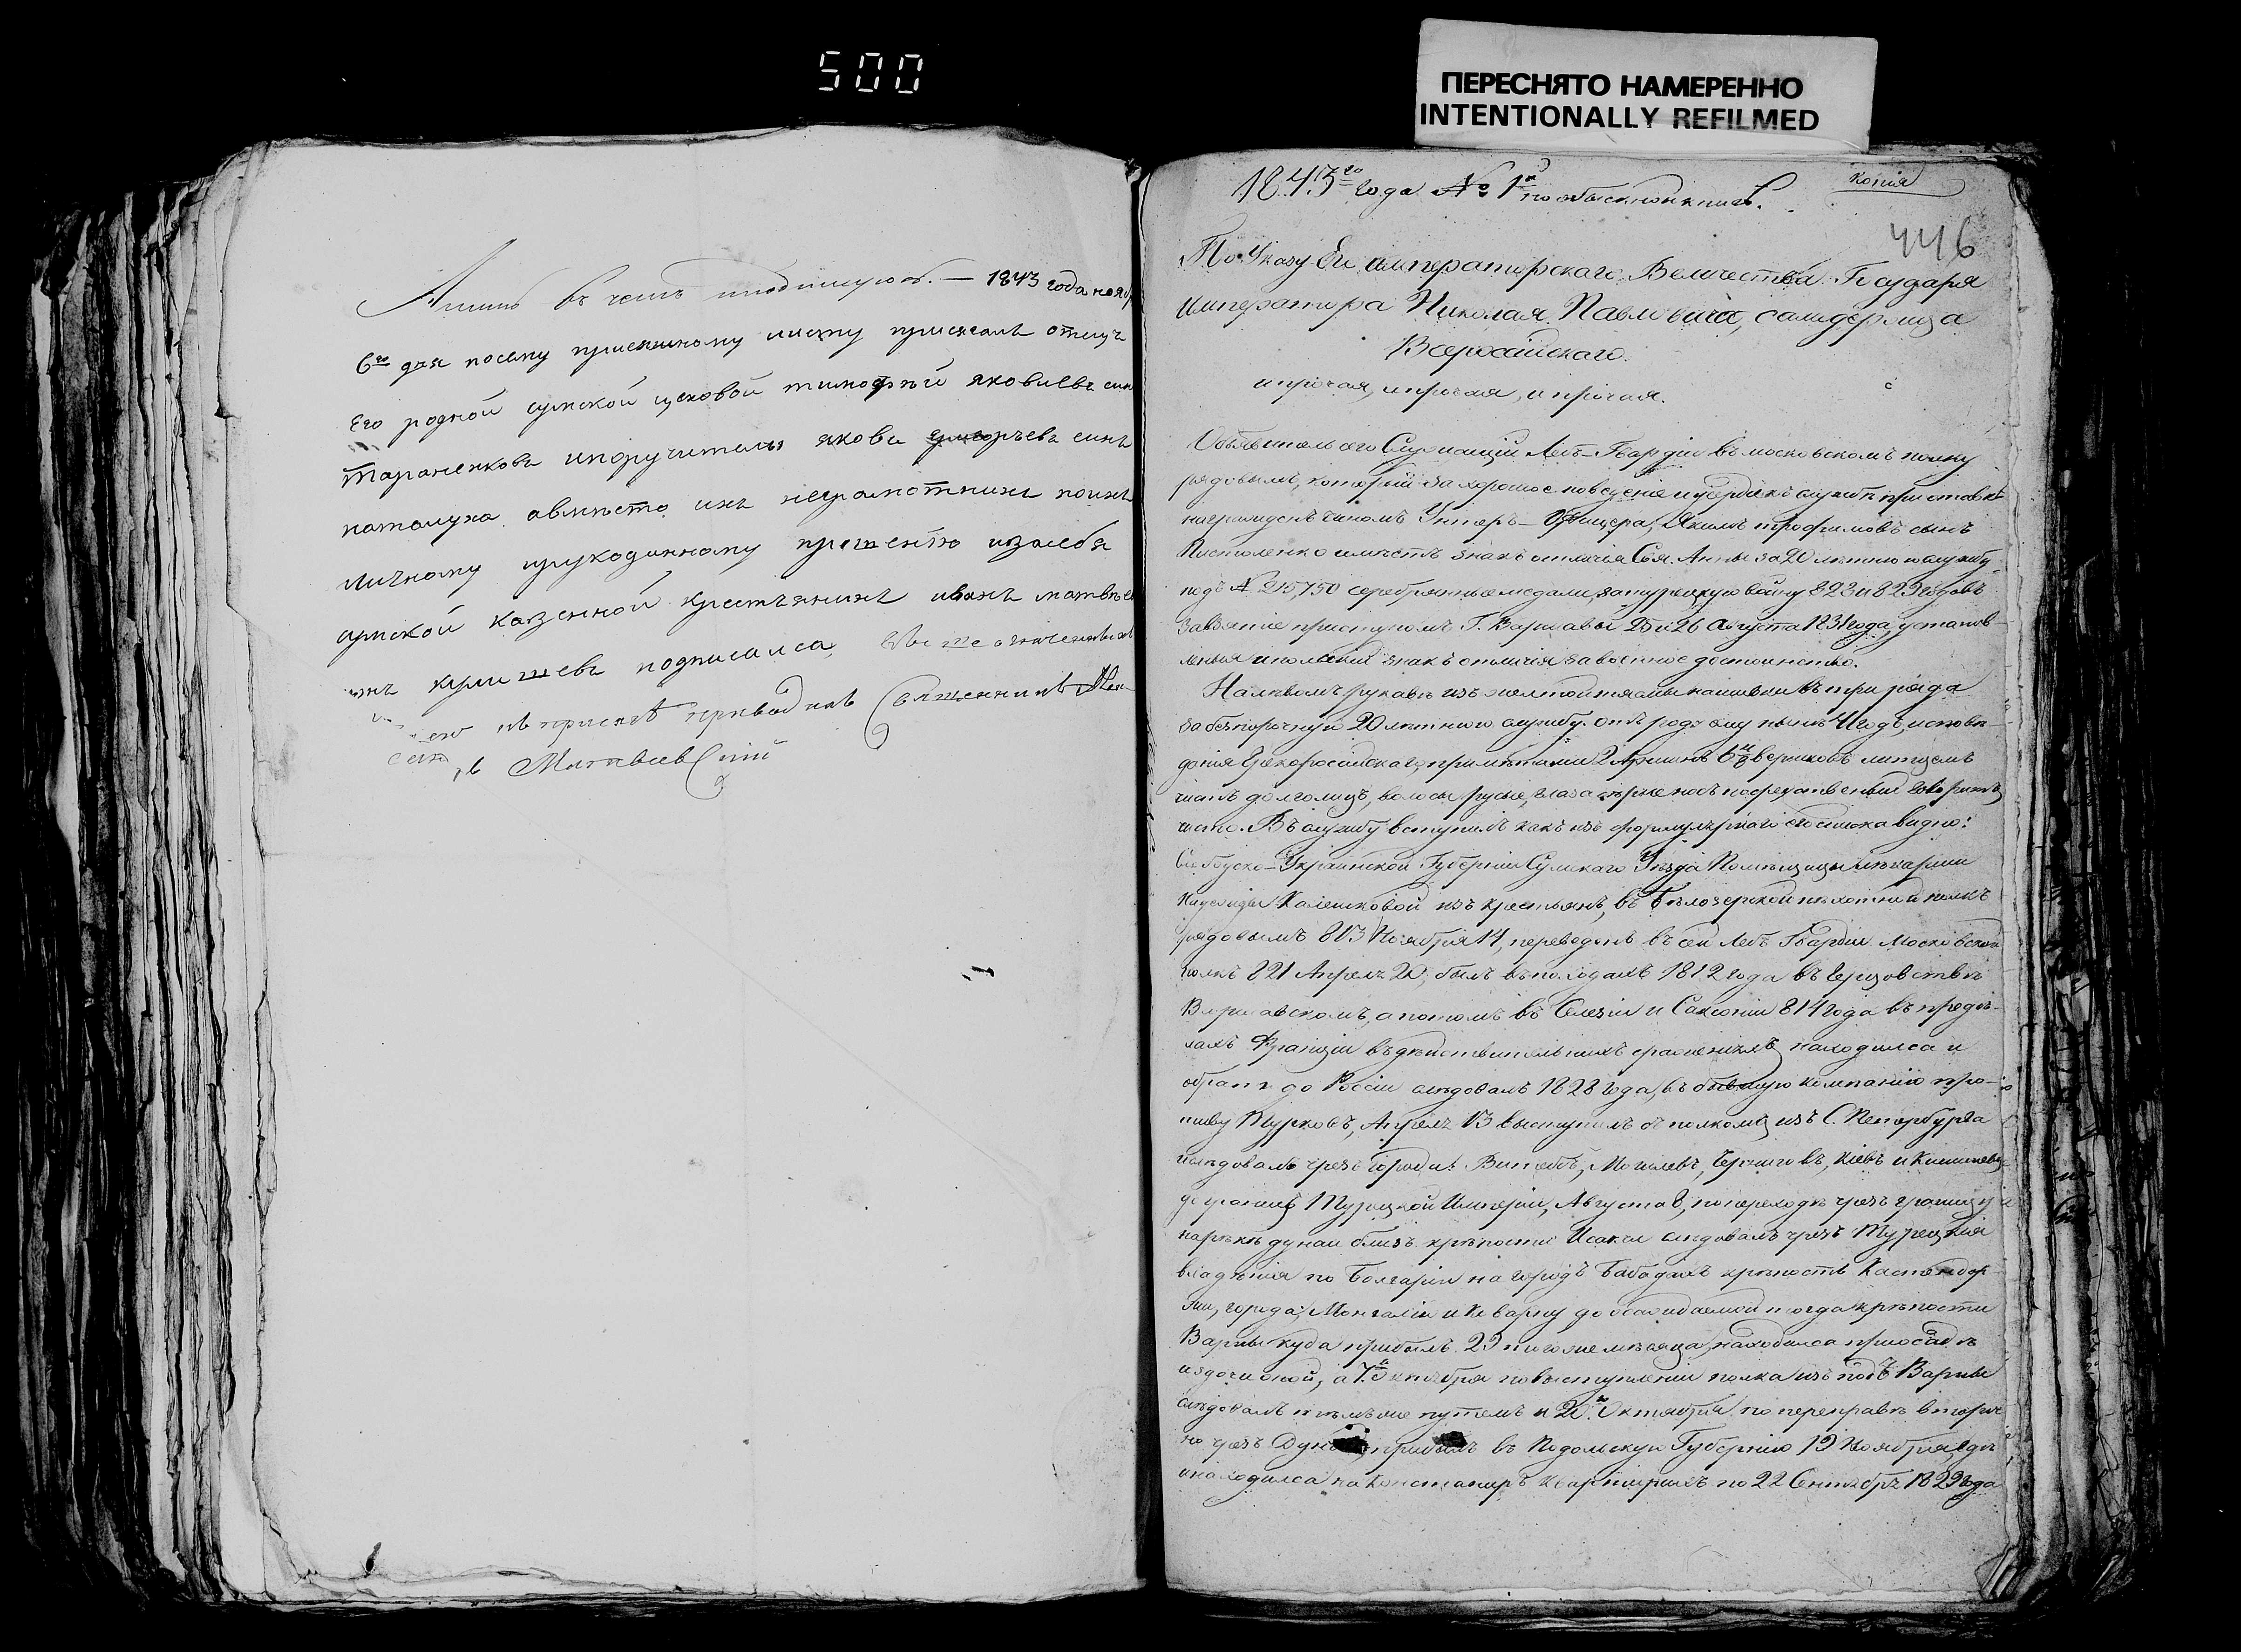 500
ПЕРЕСНЯТО НАМЕРЕННО
INTENTIONALLY REFILMED
Аминь въ чемъ и подпишуюсь. — 1843 года нояб
6го дня посему присяжному листу присягалъ отецъ
его родной сумской цеховой тимофѣй яковлевъ син
Тараненковъ ипоручитель якови григорьевъ синъ
авмѣсто ихъ неграмотнихъ поихъ
личному ирукоданному прошенію изасебя
сумской казенной крестьянинъ иванъ матвѣев
синъ подписался, Вышеозначенныхъ
къ присягѣ приводилъ Священникъ
Матвѣевскій
копія
1843го года № 1й по обыскной книгѣ.
446
По Указу Его императорскаго Величества Государя
императора Николая Павловича, самодержца
Всеросійскаго.
ипрочая, ипрочая, и прочая.
Объявитель сего Служащій Лейбъ-Гвардіи въ московскомъ полку
рядовымъ, который за хорошое поведеніе и усердіе къ службѣ при отставкѣ
награжденъ чиномъ Унтеръ-Офицера, Якимъ трофимовъ сынъ
имѣетъ знакъ отличія Свя. Анны за 20 лѣтнюю службу
подъ № 215,750 серебрянные медали, за турецкую войну 828 и 829 годовъ
завзятіе приступомъ Г. Варшавы 25 и 26 Августа 1831 года, установ-
леныя и польскій знакъ отличія за военное достоинство.
На лѣвомъ рукавѣ изъ желтой тясьмы нашивки въ три ряда
за безпорочную 20 лѣтнюю службу. отъ роду ему нынѣ 49 годъ, исповѣ-
данія Грекоросійскаго, примѣтами 2 Аршинъ 6 вершковъ лицемъ
чистъ долголицъ, волосы русые, глаза серые носъ посредственный говоритъ
чисто. Въ службу вступилъ какъ изъ формулярнаго его списка видно:
Слободско-Украинской Губерніи Сумскаго Уезда Помѣщицы
изъ крестьянъ, въ Бѣлозерской пѣхотный полкъ
рядовымъ 813 Ноября 14, переведенъ въ сей Лейбъ Гвардіи Московской
полкъ 821 Апреля 20, былъ въ походахъ 1812 года въ Герцовствѣ
Варшавскомъ, а потомъ въ Селезіи и Саксоніи 814 года въ предѣ-
лахъ Франціи въ дѣйствительныхъ сраженіяхъ находился и
обратно до Россіи слѣдовалъ 1828 года, въ бывшую компанію про-
тиву Турковъ, Апреля 13 выступилъ съ полкомъ изъ С. Петербурга
и слѣдовалъ чрезъ города: Витебъ, Могилевъ, Черниговъ, Кіевъ и Кишиневъ
до границъ Турецкой Имперіи, Августа 8, по переходѣ чрезъ границу
на рѣкѣ дунаи близъ крѣпости Исакчи слѣдовалъ чрезъ Турецкія
владѣнія по Болгаріи на городъ Бабадахъ крѣпость
города Мангаліи и Коварну до осаждаемой тогда крѣпости
Варны куда прибылъ 29 тогоже мѣсяца, находился при осадѣ
и здачи оной, а 7й Октября по выступленіи полка изъ подъ Варны
слѣдовалъ тѣмъже путемъ и 20го Октября, по переправѣ вторич
но чрезъ прибылъ въ Подольскую Губернію 19 Ноября, гдѣ
и находился на Кантониръ Квартирахъ по 22 Сентября 1829 года